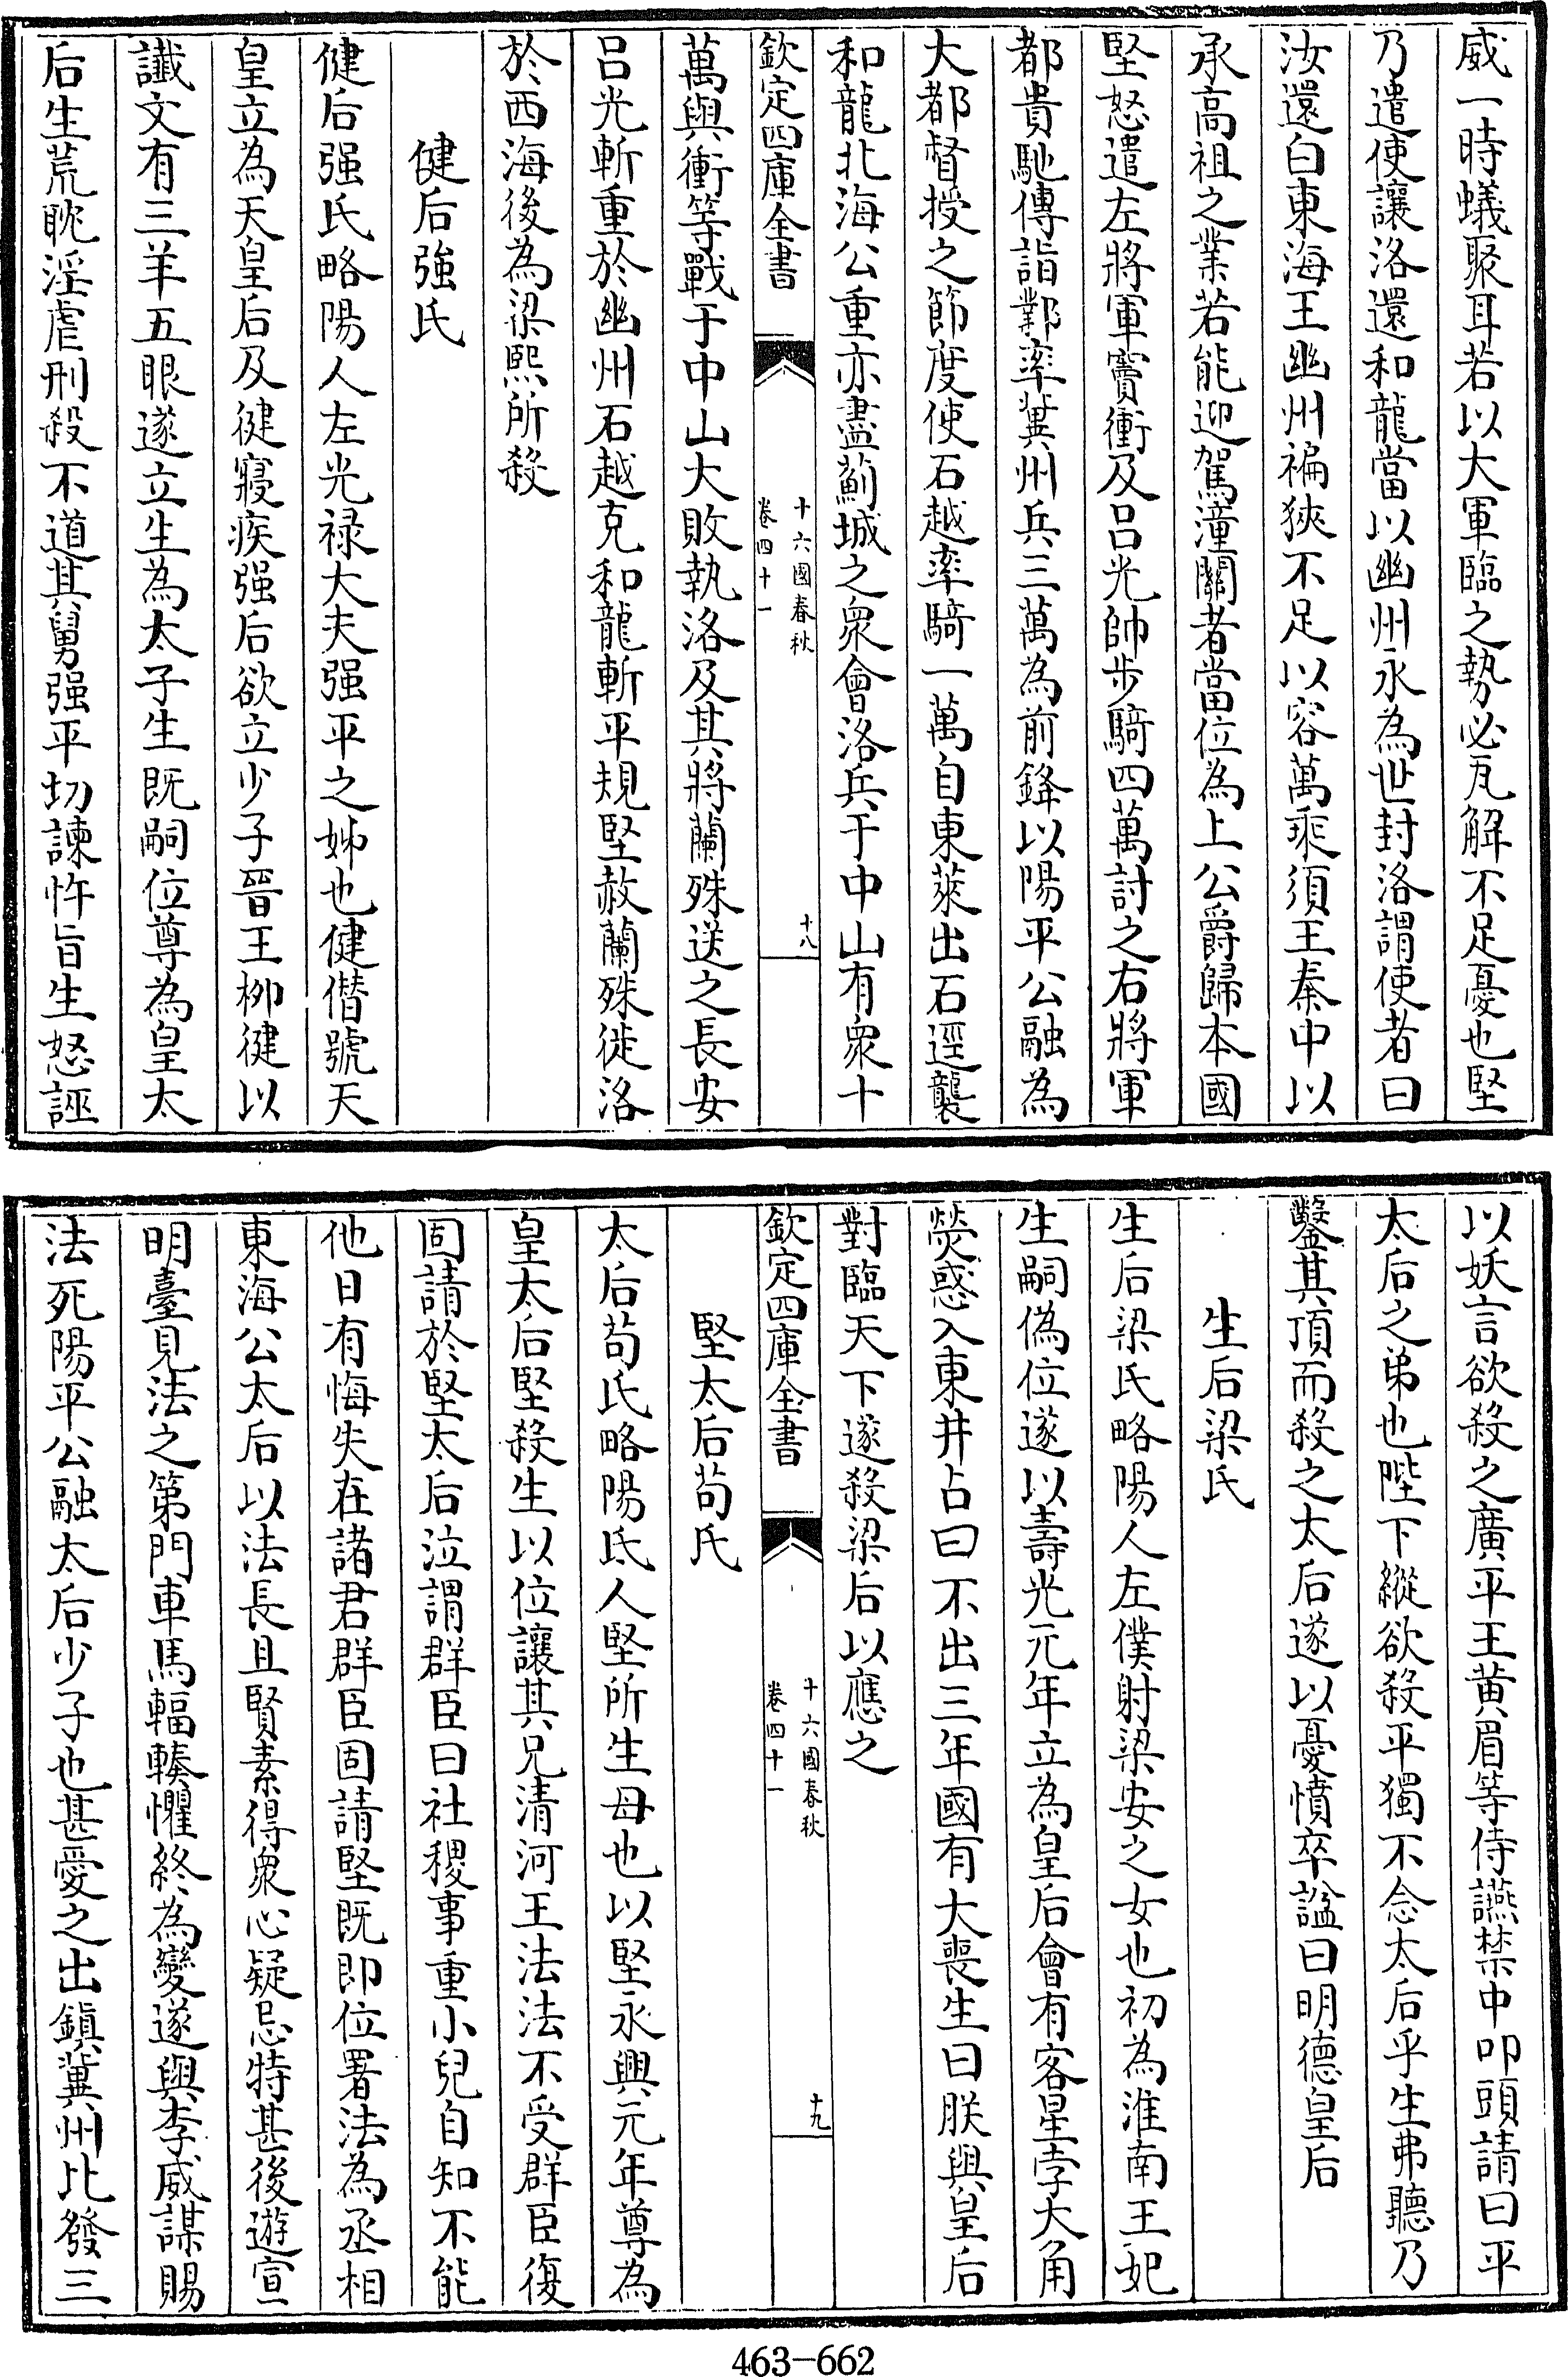 威一時蟻聚耳若以大軍臨之勢必瓦解不足憂也堅
乃遣使讓洛還和龍當以幽州永為世封洛謂使者曰
汝還白東海王幽州褊狹不足以容萬乘須王秦中以
承高祖之業若能迎駕潼關者當位為上公爵歸本國
堅怒遣左將軍竇衝及吕光帥步騎四萬討之右將軍
都貴馳傳詣鄴率冀州兵三萬為前鋒以陽平公融為
大都督授之節度使石越率騎一萬自東萊出石逕襲
和龍北海公重亦盡薊城之衆會洛兵于中山有衆十
欽定四庫全書
十六國春秋
卷四十一
十八
萬與衝等戰于中山大敗執洛及其將蘭殊送之長安
吕光斬重於幽州石越克和龍斬平規堅赦蘭殊徙洛
於西海後為梁熙所殺
健后強氏
健后强氏略陽人左光禄大夫强平之姊也健僭號天
皇立為天皇后及健寢疾强后欲立少子晉王柳健以
讖文有三羊五眼遂立生為太子生既嗣位尊為皇太
后生荒耽淫虐刑殺不道其舅强平切諫忤旨生怒誣
以妖言欲殺之廣平王黄眉等侍讌禁中叩頭請曰平
太后之弟也陛下縱欲殺平獨不念太后乎生弗聽乃
鑿其頂而殺之太后遂以憂憤卒諡曰明德皇后
生后梁氏
生后梁氏略陽人左僕射梁安之女也初為淮南王妃
生嗣偽位遂以壽光元年立為皇后會有客星孛大角
熒惑入東井占曰不出三年國有大喪生曰朕與皇后
對臨天下遂殺梁后以應之
欽定四庫全書
十六國春秋
卷四十一
十九
堅太后苟氏
太后苟氏略陽氐人堅所生母也以堅永興元年尊為
皇太后堅殺生以位讓其兄清河王法法不受群臣復
固請於堅太后泣謂群臣曰社稷事重小兒自知不能
他日有悔失在諸君群臣固請堅既即位署法為丞相
東海公太后以法長且賢素得衆心疑忌特甚後遊宣
明臺見法之第門車馬輻輳懼終為變遂與李威謀賜
法死陽平公融太后少子也甚愛之出鎮冀州比發三
463-662